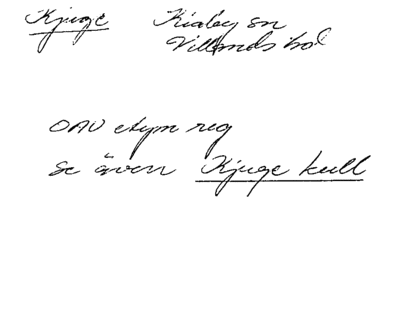 Kjuge Kiaby sn
Villands hd
OAU etym reg
se även Kjuge kull